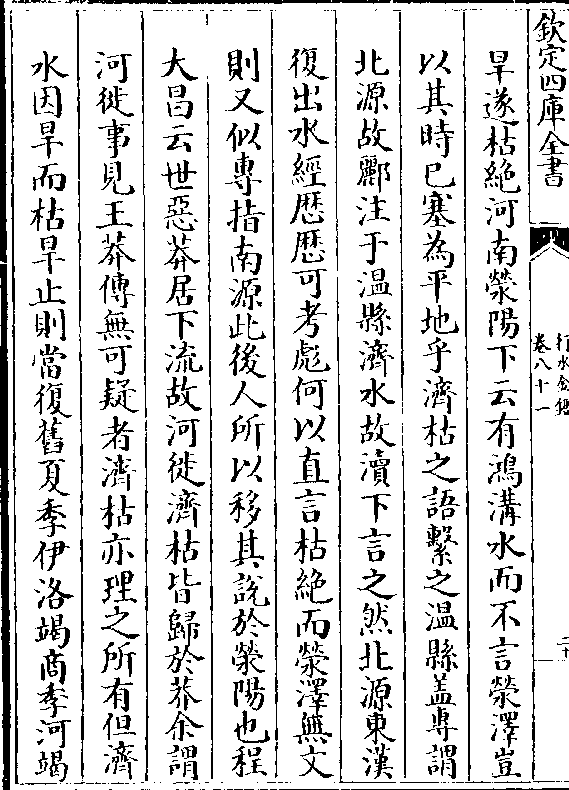 欽定四庫全書
行水金鑑
卷八十一
二十
旱遂枯絶河南滎陽下云有鴻溝水而不言滎澤豈
以其時已塞為平地乎濟枯之語繫之温縣盖專謂
北源故酈注于温縣濟水故瀆下言之然北源東漢
復出水經歴歴可考彪何以直言枯絶而滎澤無文
則又似專指南源此後人所以移其説於滎陽也程
大昌云世惡莽居下流故河徙濟枯皆歸於莽余謂
河徙事見王莽傳無可疑者濟枯亦理之所有但濟
水因旱而枯旱止則當復舊夏季伊洛竭商季河竭